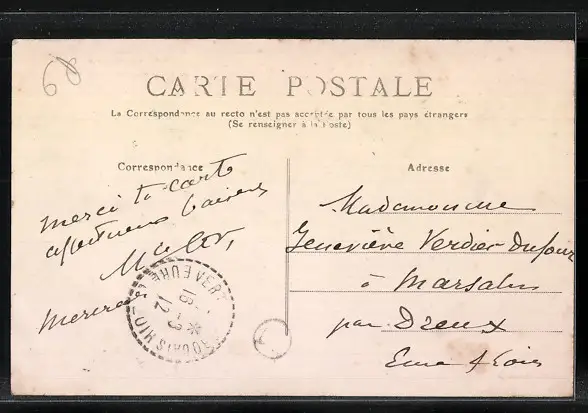 68
CARTE POSTALE
La Correspondance au recto n'est pas acceptée par tous les pays étrangers
(Se renseigner à la Poste)
Correspondance
merci ta carte
affectueux baisers
Mercredi
Adresse
Mademoiselle
Geneviève Verdier Dufour
à Marsalin
par Dreux
Eure & Loir